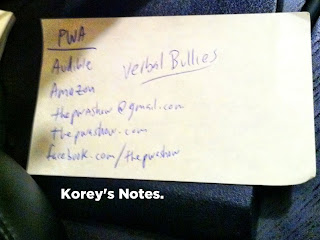 PWA
Audible
Verbal Bullies
Amazon
thepwashow@gmail.com
thepwashow.com
facebook.com/thepwashow
Korey's Notes.